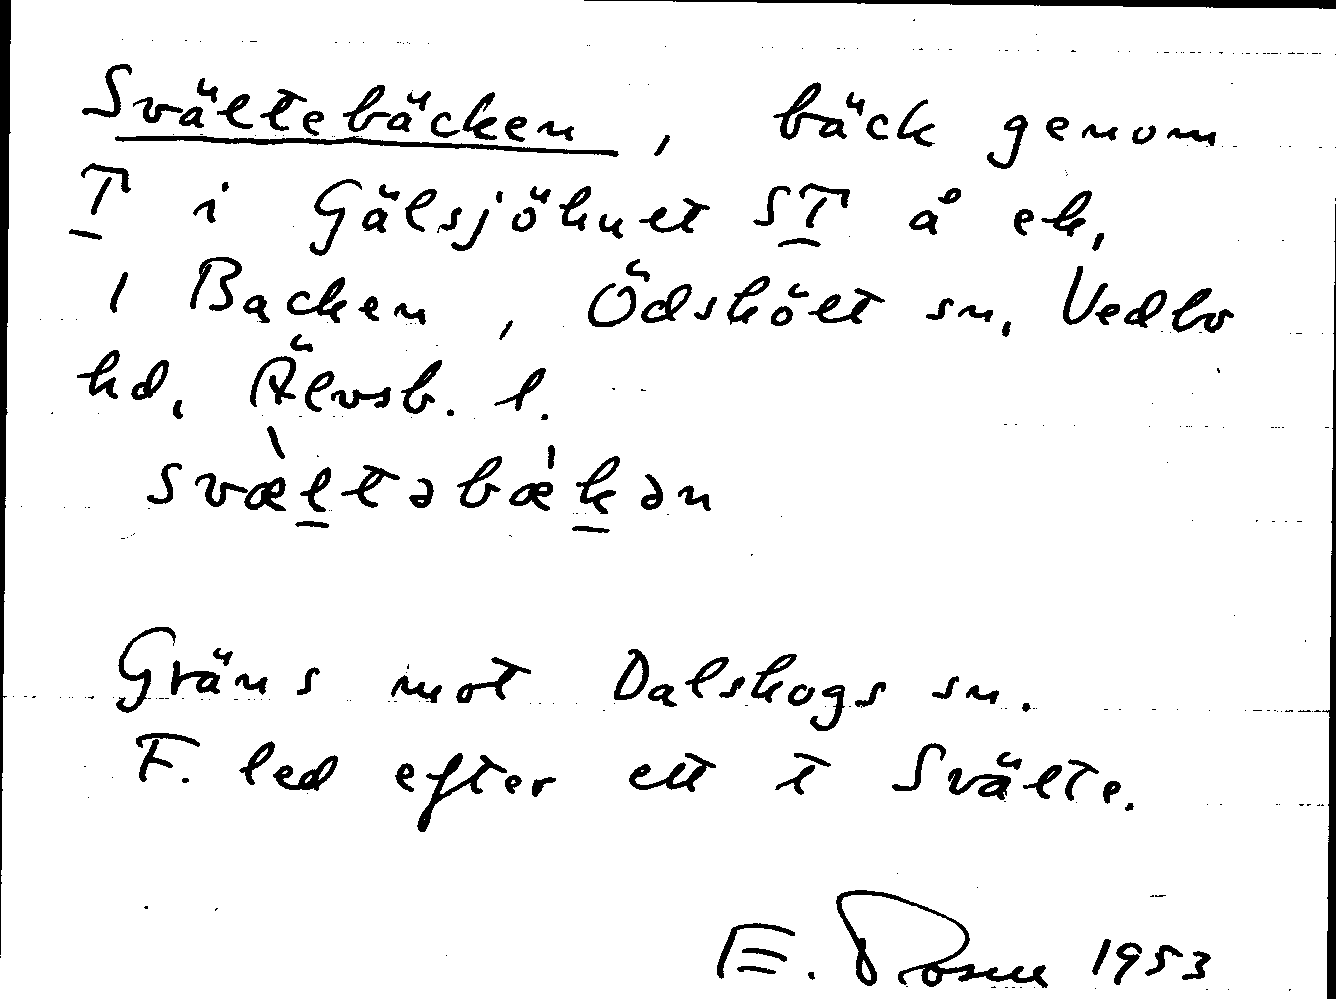 Svältebäcken, bäck genom
T i Gälsjöhult ST å ek.
1 Backen, Ödskölt sn, Vedbo
hd, Älvsb. l.
svæ̀ltəbæ̍kən
Gräns mot Dalskogs sn.
F. led efter ett t Svälte.
E. Rosell 1953